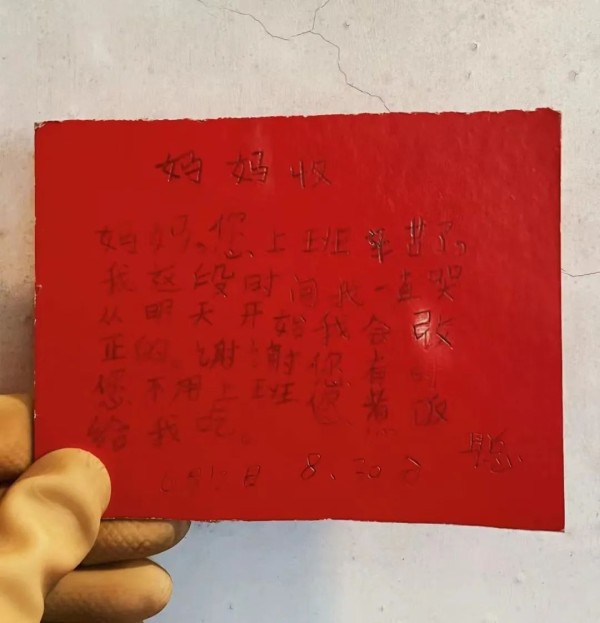 妈妈收
妈妈,您上班辛苦了。
我这段时间我一直哭
从明天开始我会改
正的。谢谢您有时
您不用上班您煮饭
给我吃。
8.30